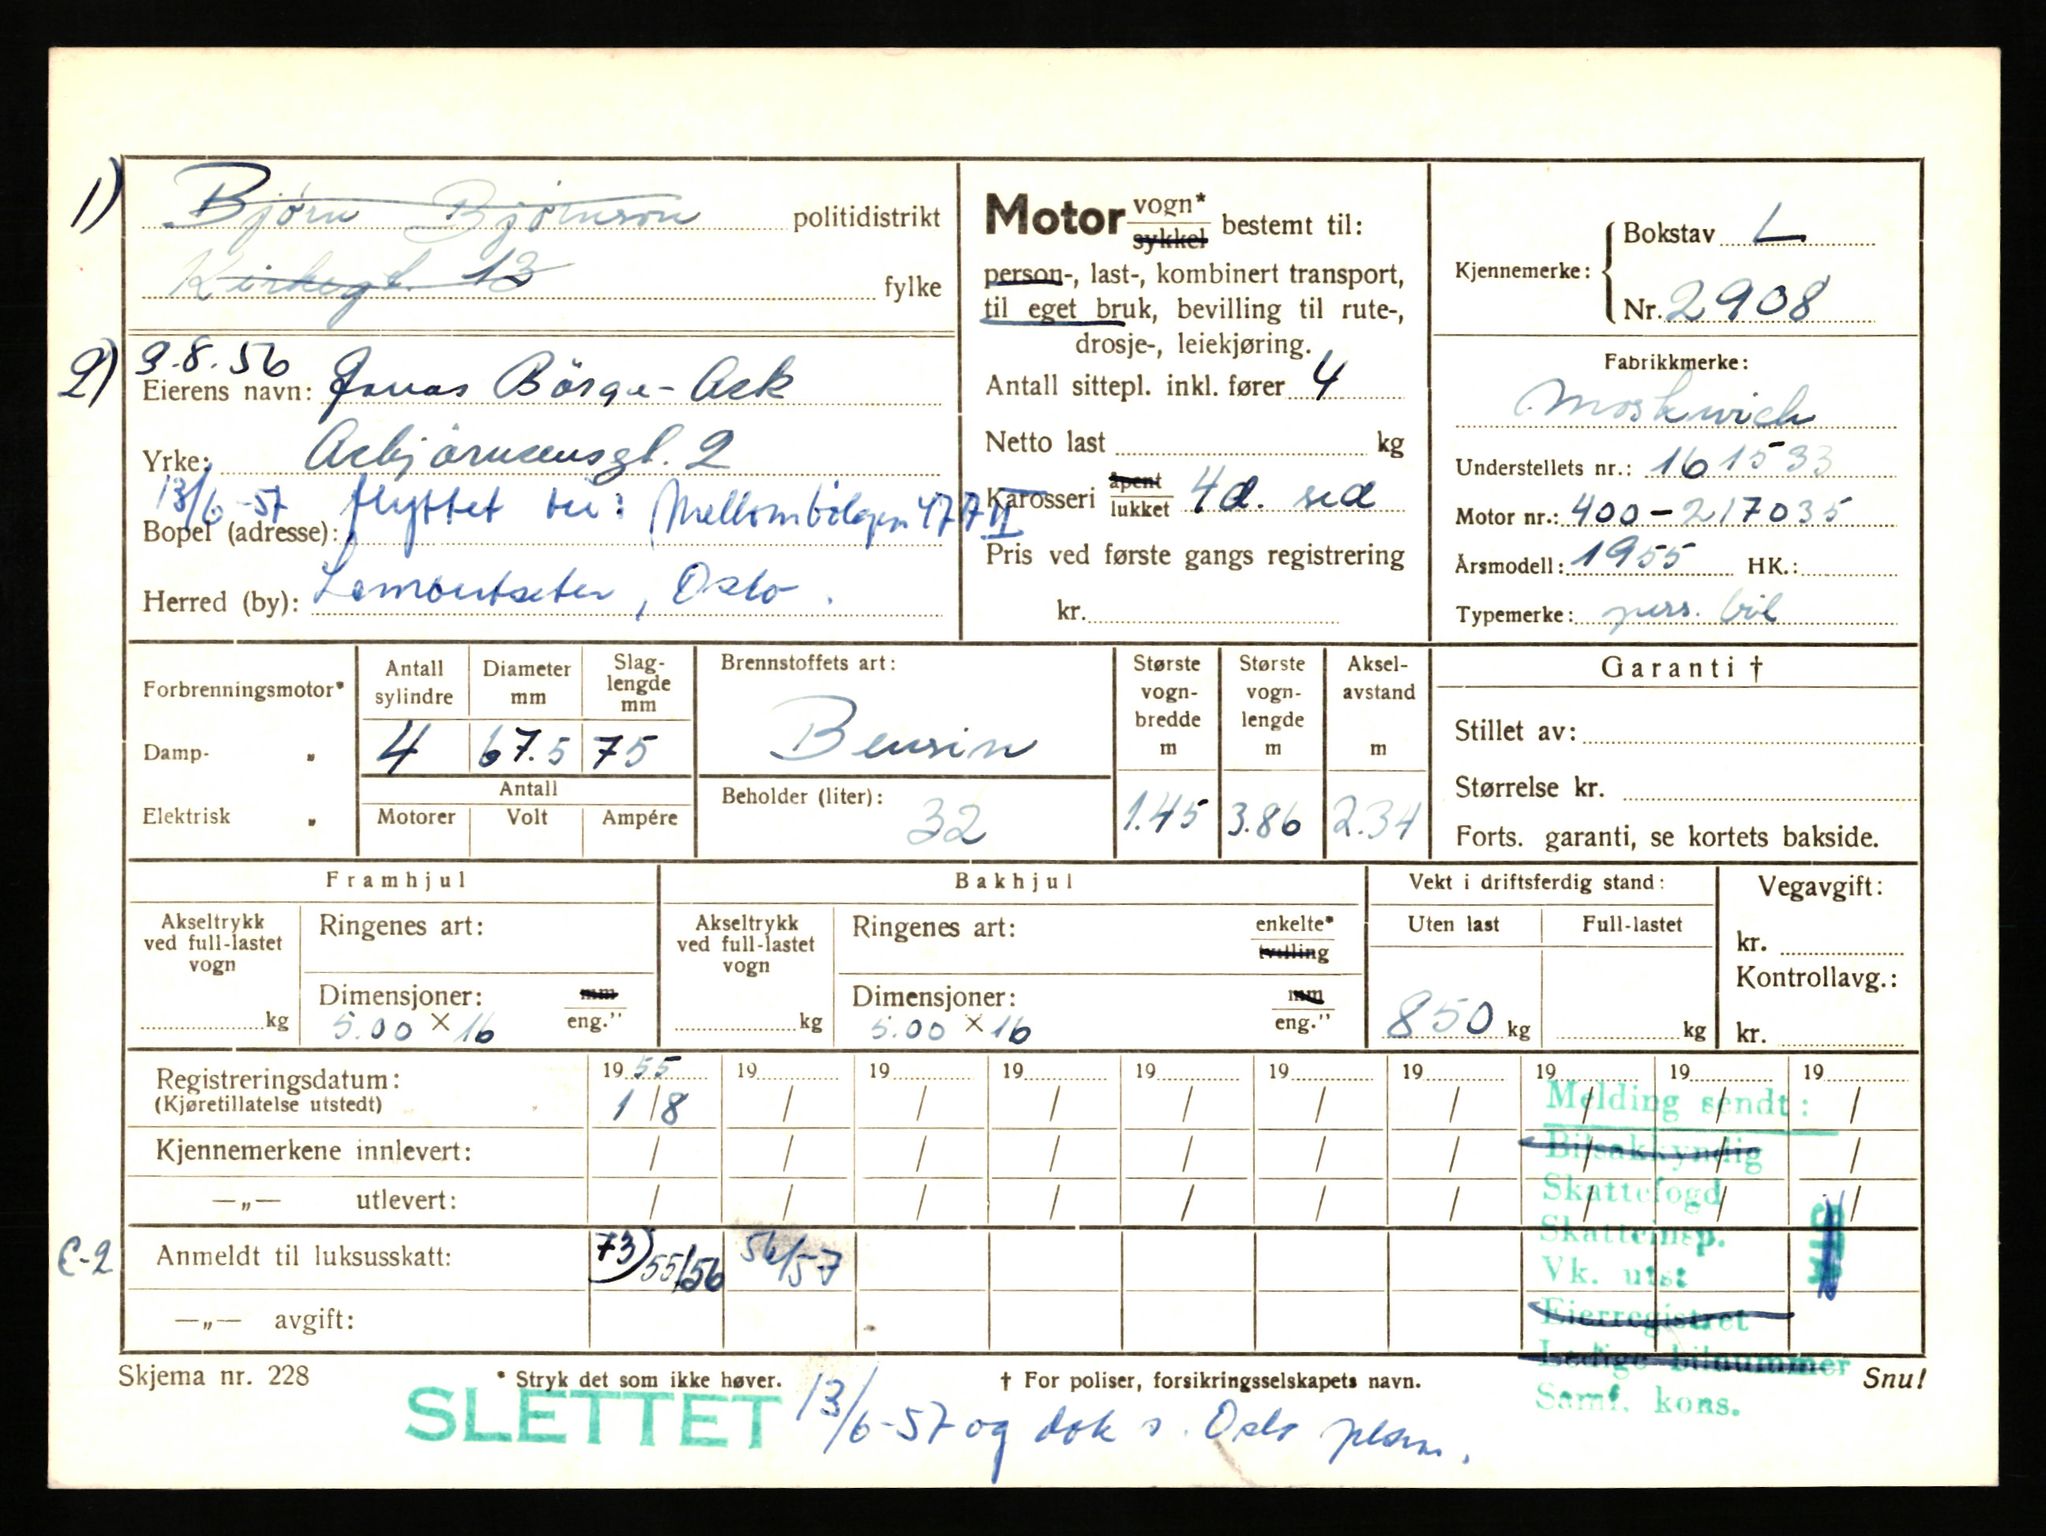 1) Bjørn Bjørnson politidistrikt
Kirkegt. 13 fylke
2) 9.8.56
Eierens navn: Jonas Börge-Ask
Yrke: Asbjörnsensgt. 2
13/6-57 flyttet til: Mellombölgen 47
Bopel (adresse):
Herred (by): Lambertseter, Oslo.
Motor vogn* sykkel bestemt til:
person-, last-, kombinert transport,
til eget bruk, bevilling til rute-,
drosje-, leiekjøring.
Antall sittepl. inkl. fører 4
Netto last kg
Karosseri åpent lukket 4d. sed
Pris ved første gangs registrering
kr.
Kjennemerke: Bokstav L
Nr. 2908
Fabrikkmerke:
Moskwich
Understellets nr.: 161533
Motor nr.: 400-217035
Årsmodell: 1955 HK.:
Typemerke: pers. bil
Forbrenningsmotor*
Damp- "
Elektrisk "
Antall sylindre
Diameter mm
Slag-lengde mm
4 67.5 75
Antall
Motorer Volt Ampére
Brennstoffets art:
Bensin
Beholder (liter):
32
Største vogn-bredde m
Største vogn-lengde m
Aksel-avstand m
1.45 3.86 2.34
Garanti †
Stillet av:
Størrelse kr.
Forts. garanti, se kortets bakside.
Framhjul
Akseltrykk ved full-lastet vogn
kg
Ringenes art:
Dimensjoner: mm eng."
5.00 × 16
Bakhjul
Akseltrykk ved full-lastet vogn
kg
Ringenes art: enkelte* tvilling
Dimensjoner: mm eng."
5.00 × 16
Vekt i driftsferdig stand:
Uten last Full-lastet
850 kg kg
Vegavgift:
kr.
Kontrollavg.:
kr.
Registreringsdatum: 19 55 19 19 19 19 19 19 19 19 19
(Kjøretillatelse utstedt) 1/8 / / / / / / / / /
Kjennemerkene innlevert: / / / / / / / / / /
—„— utlevert: / / / / / / / / / /
C-2 Anmeldt til luksusskatt: 73) 55/56 56/57
—„— avgift:
Melding sendt:
Bilsakkyndig
Skattefogd
Skatteinsp.
Vk. utst
Eierregistret
Ledige bilnummer
Samf. kons.
Skjema nr. 228 * Stryk det som ikke høver. † For poliser, forsikringsselskapets navn. Snu!
SLETTET 13/6-57 og dok s. Oslo